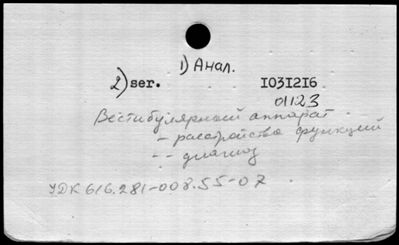 1) Анал.
2) ser. 1031216
01123
Вестибулярный аппарат
- расстройства функций
- - диагноз
УДК 616.281-008.55-07